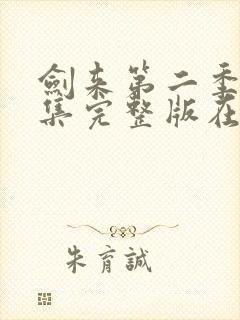 剑来第二季
集完整版在
朱育誠